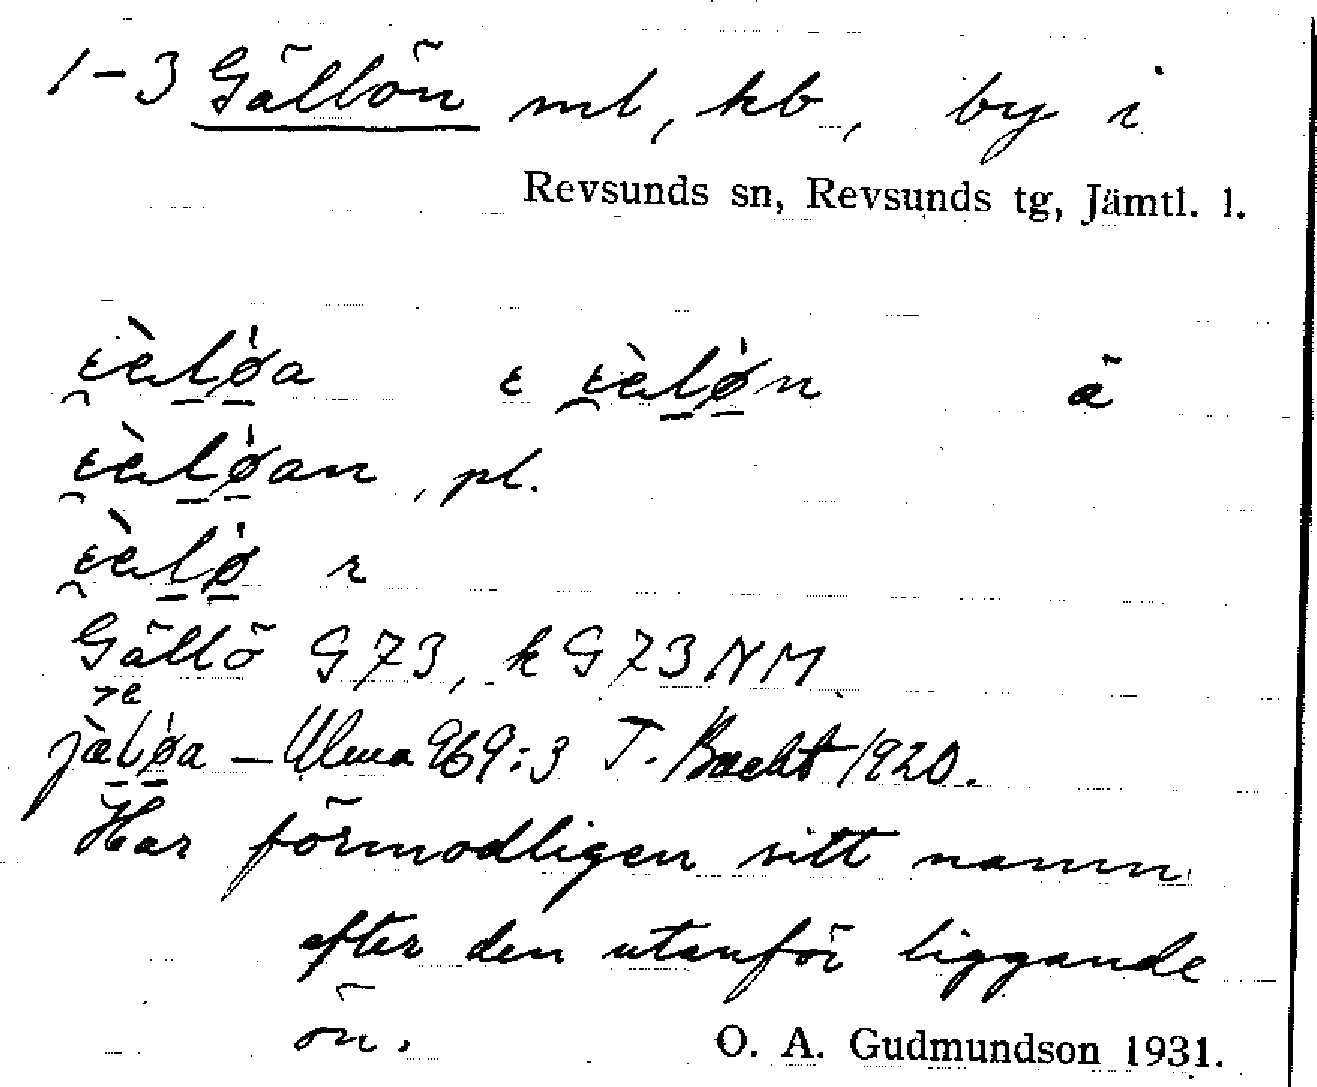 1-3 Gällön ml, kb, by i
Revsunds sn, Revsunds tg, Jämtl. l.
ä
, pl.
r
Gällö G73, kG73NM
jæløa – Ulma 969:3 J. Bucht 1920.
Har förmodligen sitt namn
efter den utanför liggande
ön.
O. A. Gudmundson 1931.